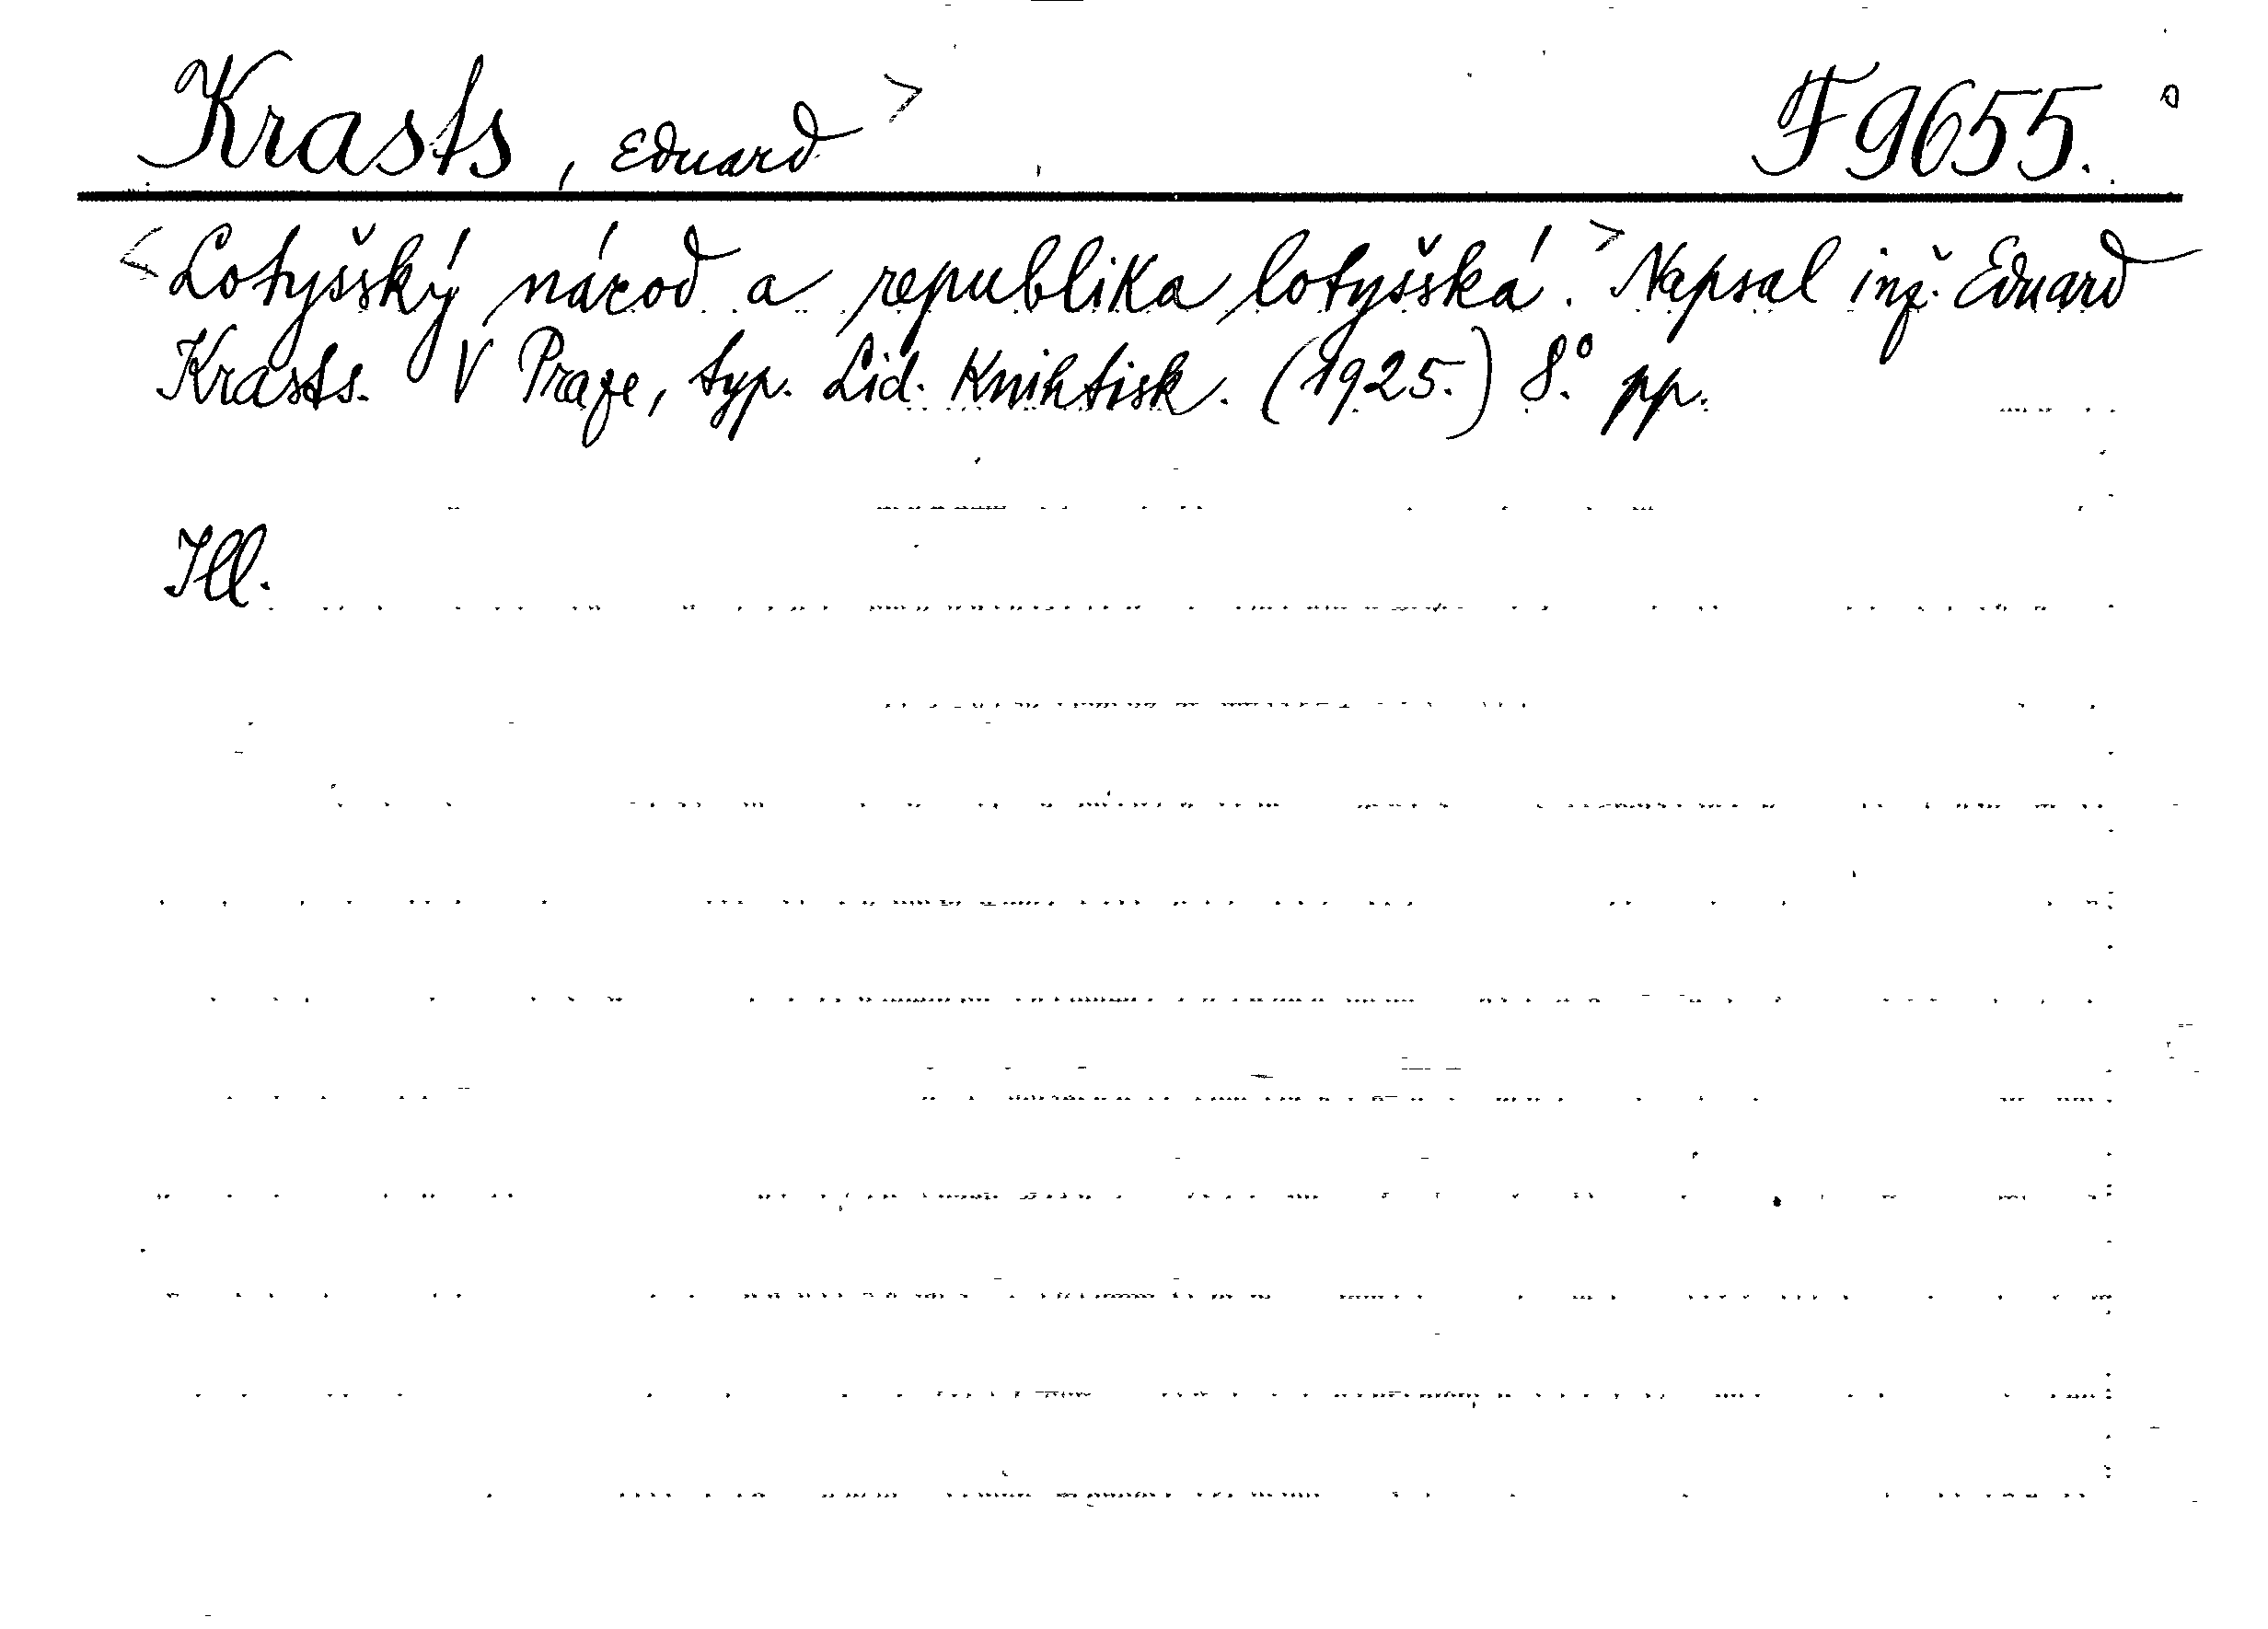 Krasts, Eduard> F 9655.
<Lotyšský národ a republika lotyšská.> Napsal inž. Eduard
Krasts. V Praze, typ. Lid. Knihtisk. (1925.) 8.° pp.
Ill.